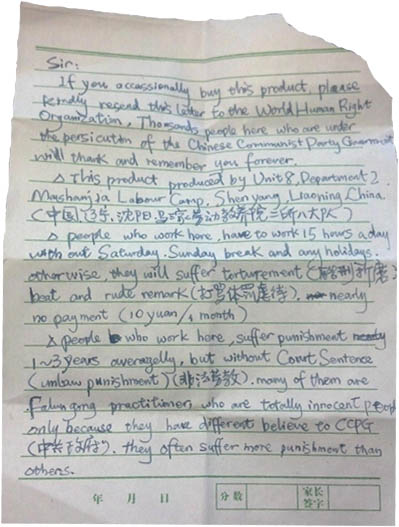 Sir:
If you occassionally buy this product, please
kindly resend this letter to the World Human Right
Organization, Thousands people here who are under
the persicution of the Chinese Communist Party Government
will thank and remember you forever.
△ This product produced by Unit 8, Department 2
Mashanjia Labour Camp, Shen yang, Liaoning, China.
(中国辽宁, 沈阳, 马三家劳动教养院二所八大队)
△ people who work here, have to work 15 hours a day
with out Saturday, Sunday break and any holidays.
otherwise, they will suffer torturement (酷刑折磨)
beat and rude remark (打骂体罚虐待), nearly
no payment (10 yuan/1 month)
△ people who work here, suffer punishment
1~3 years averagelly, but without Court Sentence
(unlaw punishment) (非法劳教). many of them are
Falun gong practitioner, who are totally innocent people
only because they have different believe to CCPG
(中共政府), they often suffer more punishment than
others.
年 月 日 分数 家长签字